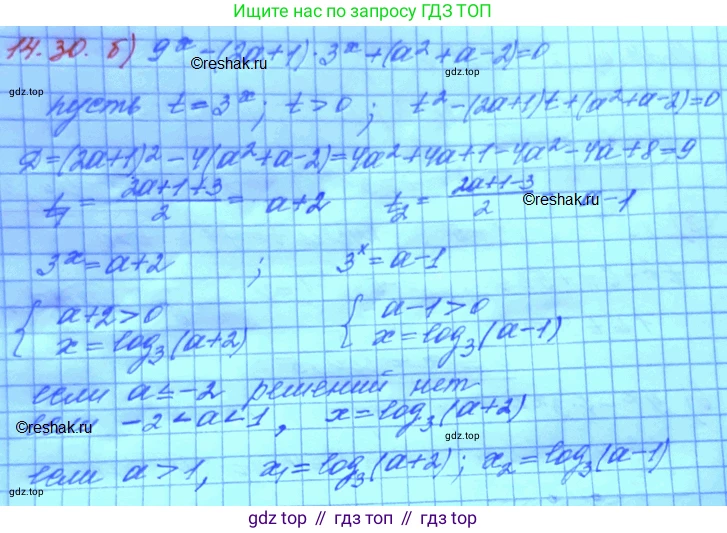 Ищите нас по запросу ГДЗ ТОП
14.30. б) 9^x - (2a+1)·3^x + (a²+a-2)=0
©reshak.ru
gdz.top
gdz.top
пусть t=3^x; t>0; t²-(2a+1)t+(a²+a-2)=0
Д=(2a+1)²-4(a²+a-2)=4a²+4a+1-4a²-4a+8=9
t₁ = (2a+1+3)/2 = a+2 t₂ = (2a+1-3)/2 = a-1
©reshak.ru
gdz.top
3^x=a+2 ; 3^x=a-1
{ a+2>0 { a-1>0
x=log₃(a+2) x=log₃(a-1)
если a≤-2 решений нет
©reshak.ru
если -2<a<1, x=log₃(a+2)
gdz.top
если a>1, x₁=log₃(a+2); x₂=log₃(a-1)
gdz.top
gdz top // гдз топ // gdz top